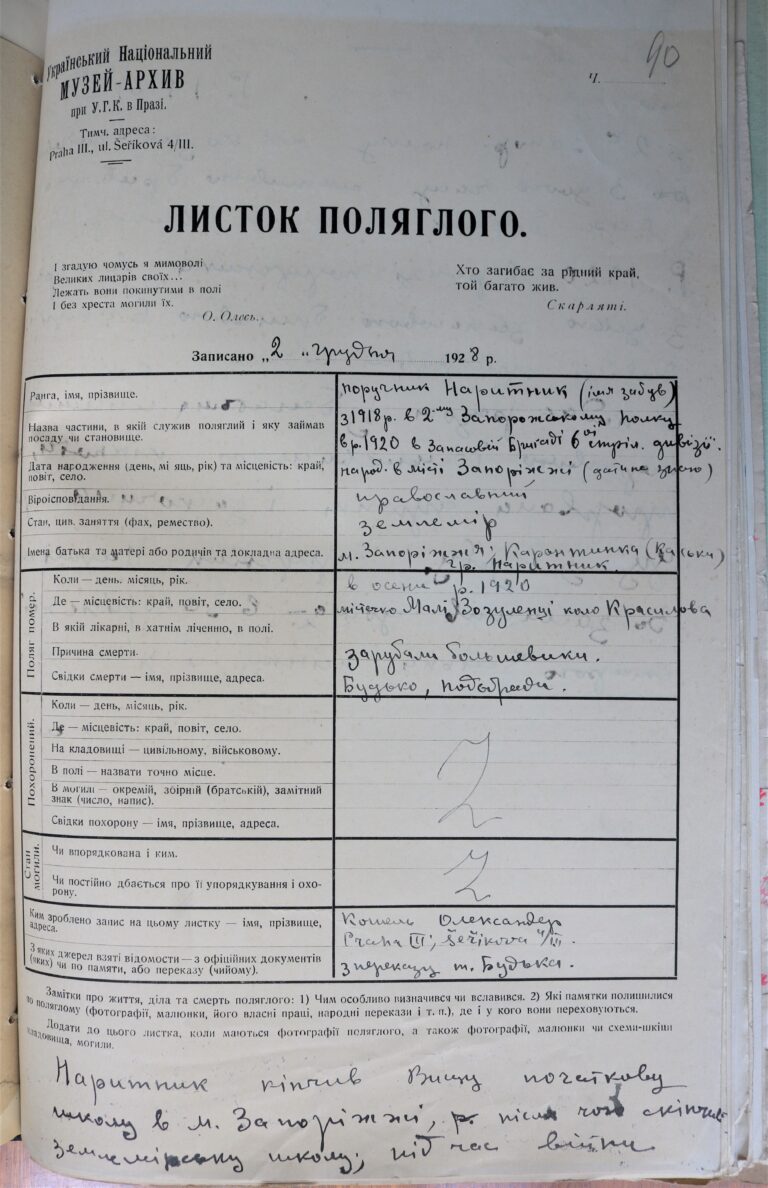 Український Національний
МУЗЕЙ-АРХИВ
при У.Г.К. в Празі.
Тимч. адреса:
Praha III., ul. Šeříková 4/III.
Ч.
90
ЛИСТОК ПОЛЯГЛОГО.
І згадую чомусь я мимоволі
Великих лицарів своїх...
Лежать вони покинутими в полі
І без хреста могили їх.
О. Олесь.
Хто загибає за рідний край,
той багато жив.
Скарляті.
Записано „2 „грудня 1928 р.
Ранга, імя, прізвище.
поручник Наритник (імя забув)
Назва частини, в якій служив поляглий і яку займав
посаду чи становище.
з 1918 р. в 2му Запорожському полку
в р. 1920 в Запасовій Бригаді 6ої стріл. дивізії.
Дата народження (день, мі яць, рік) та місцевість: край,
повіт, село.
народ. в місті Запоріжжі (дати не знаю)
Віроісповідання.
православний
Стан, цив. заняття (фах, ремество).
землемір
Імена батька та матері або родичів та докладна адреса.
м. Запоріжжя; Карантинка
гр. Наритник.
Поляг помер.
Коли — день. місяць, рік.
в осени р. 1920
Де — місцевість: край, повіт, село.
містечко Малі Зозуленці коло Красилова
В якій лікарні, в хатнім ліченню, в полі.
Причина смерти.
зарубали большевики.
Свідки смерти — імя, прізвище, адреса.
Будько, Подєбради.
Похоронений.
Коли — день, місяць, рік.
Де — місцевість: край, повіт, село.
На кладовищі — цивільному, військовому.
В полі — назвати точно місце.
В могилі — окремій, збірній (братській), замітний
знак (число, напис).
Свідки похорону — імя, прізвище, адреса.
Стан могили.
Чи впорядкована і ким.
Чи постійно дбається про її упорядкування і охо-
рону.
Ким зроблено запис на цьому листку — імя, прізвище,
адреса.
Кошель Олександер
Praha III; Šeříkova 4/III.
З яких джерел взяті відомости — з офіційних документів
(яких) чи по памяти, або переказу (чийому).
з переказу п. Будька.
Замітки про життя, діла та смерть поляглого: 1) Чим особливо визначився чи вславився. 2) Які памятки полишилися
по поляглому (фотографії, малюнки, його власні праці, народні перекази і т. п.), де і у кого вони переховуються.
Додати до цього листка, коли маються фотографії поляглого, а також фотографії, малюнки чи схеми-шкіци
кладовища, могили.
Наритник кінчив Вищу початкову
школу в м. Запоріжжі, р. після чого скінчив
землемірську школу; під час війни